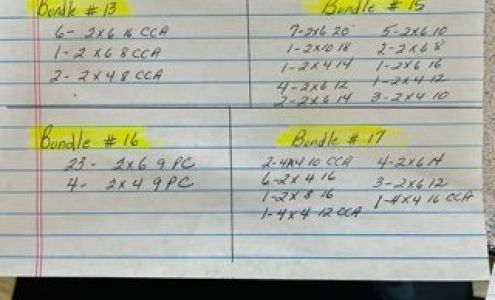 Bundle # 13
6- 2x6 16 CCA
1-2 x 6 8 CCA
2- 2x4 8 CCA
Bundle # 15
7-2x6 20 5-2x6 10
1-2x10 18 2-2x6 8
1-2x4 14 1-2x6 16
4-2x6 12 1-2x4 12
2-2x6 14 3-2x4 10
Bundle # 16
23- 2x6 9 PC
4- 2x4 9 PC
Bundle # 17
2-4x4 10 CCA 4-2x6 14
6-2x4 16 3-2x6 12
1-2x8 16 1-4x4 16 CCA
1-4x4 12 CCA